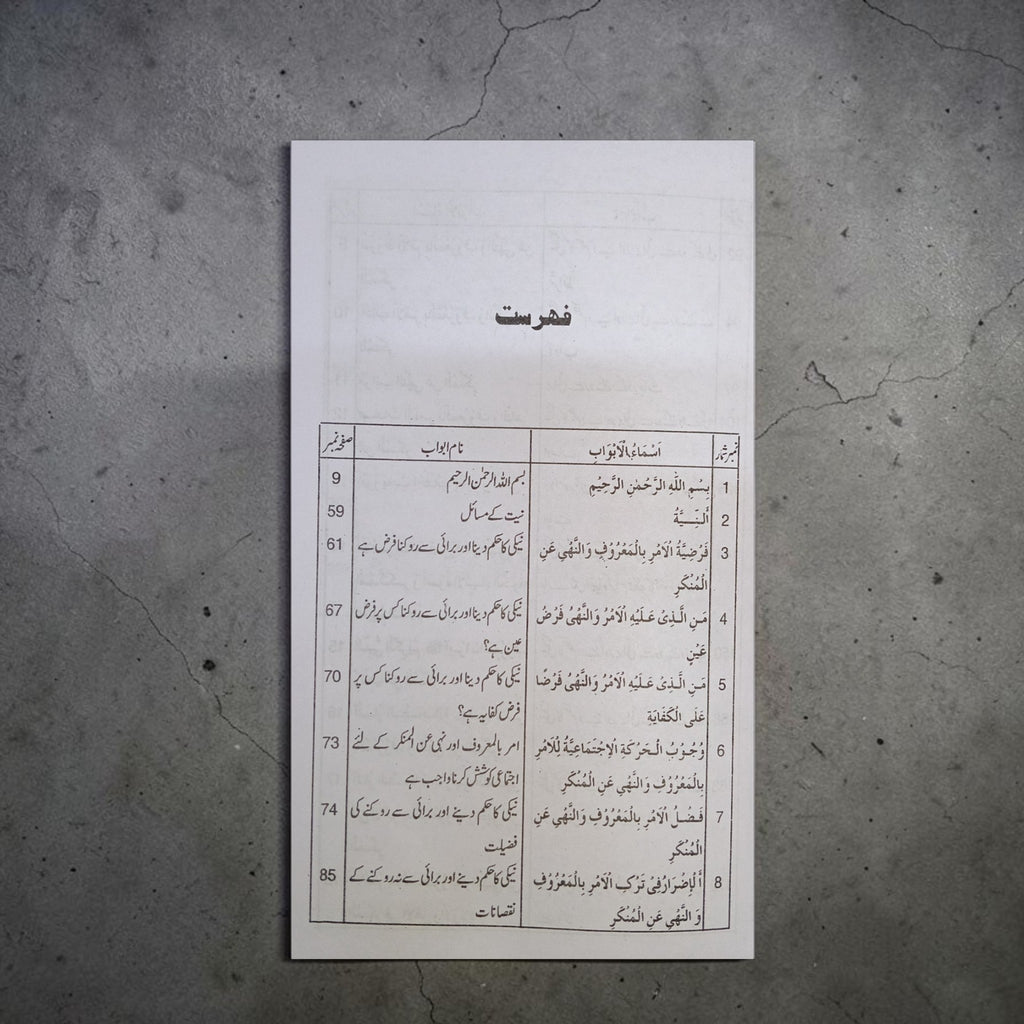 فهرست
نمبر شمار اَسْمَاءُ الْاَبْوَابِ نام ابواب صفحہ نمبر
1 بِسْمِ اللّٰهِ الرَّحْمٰنِ الرَّحِيْمِ بسم اللہ الرحمٰن الرحیم 9
2 اَلنِّـيَّةُ نیت کے مسائل 59
3 فَرْضِيَّةُ الْاَمْرِ بِالْمَعْرُوْفِ وَالنَّهْىِ عَنِ نیکی کا حکم دینا اور برائی سے روکنا فرض ہے 61
الْمُنْكَرِ
4 مَنِ الَّذِىْ عَلَيْهِ الْاَمْرُ وَالنَّهْىُ فَرْضُ نیکی کا حکم دینا اور برائی سے روکنا کس پر فرض 67
عَيْنٍ عین ہے؟
5 مَنِ الَّذِىْ عَلَيْهِ الْاَمْرُ وَالنَّهْىُ فَرْضًا نیکی کا حکم دینا اور برائی سے روکنا کس پر 70
عَلَى الْكَفَايَةِ فرض کفایہ ہے؟
6 وُجُوْبُ الْحَرَكَةِ الْاِجْتِمَاعِيَّةُ لِلْاَمْرِ امر بالمعروف اور نہی عن المنکر کے لئے 73
بِالْمَعْرُوْفِ وَالنَّهْىِ عَنِ الْمُنْكَرِ اجتماعی کوشش کرنا واجب ہے
7 فَضْلُ الْاَمْرِ بِالْمَعْرُوْفِ وَالنَّهْىِ عَنِ نیکی کا حکم دینے اور برائی سے روکنے کی 74
الْمُنْكَرِ فضیلت
8 اَلْاِضْرَارُ فِىْ تَرْكِ الْاَمْرِ بِالْمَعْرُوْفِ نیکی کا حکم دینے اور برائی سے نہ روکنے کے 85
وَالنَّهْىِ عَنِ الْمُنْكَرِ نقصانات